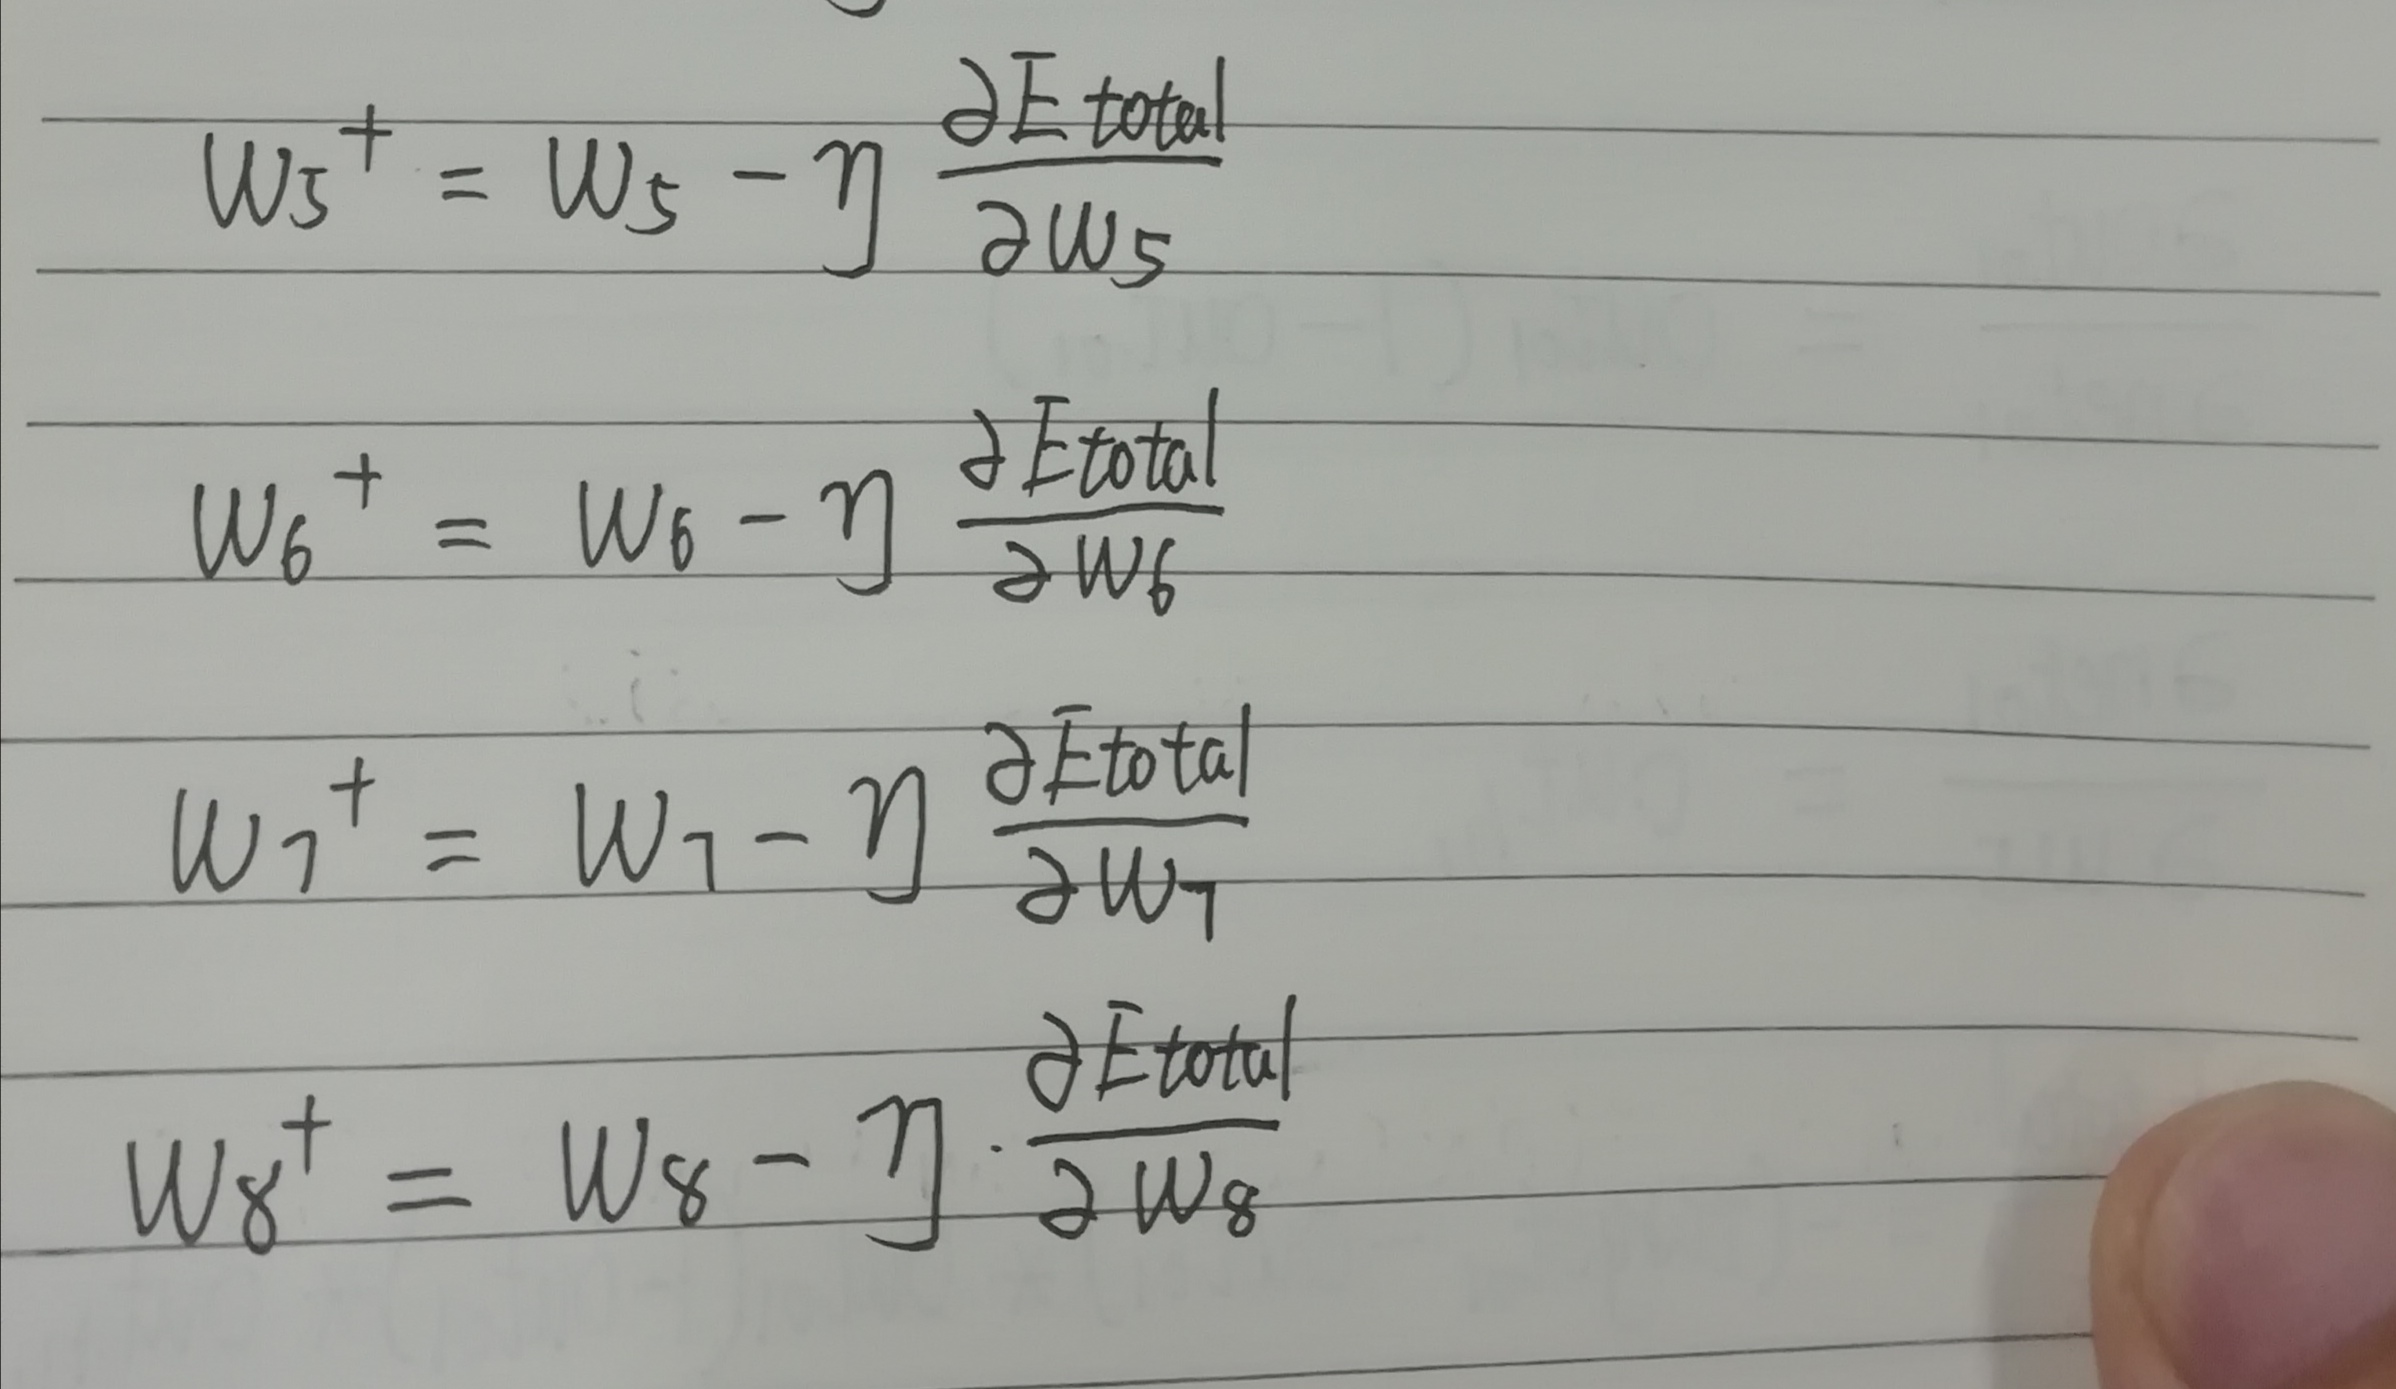 W₅⁺ = W₅ - η ∂Etotal/∂W₅
W₆⁺ = W₆ - η ∂Etotal/∂W₆
W₇⁺ = W₇ - η ∂Etotal/∂W₇
W₈⁺ = W₈ - η · ∂Etotal/∂W₈